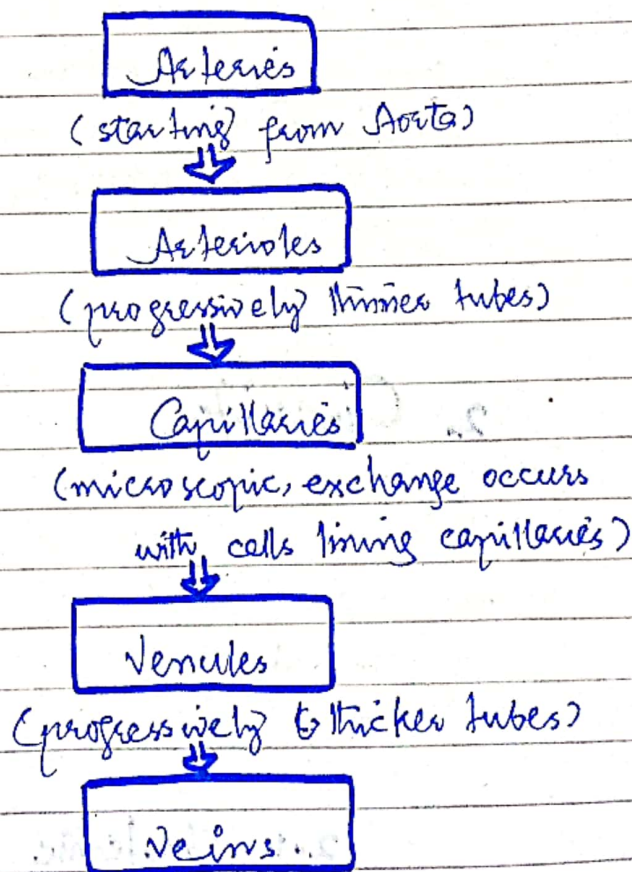 Arteries
(starting from Aorta)
Arterioles
(progressively thinner tubes)
Capillaries
(microscopic, exchange occurs
with cells lining capillaries)
Venules
(progressively to thicker tubes)
Veins..